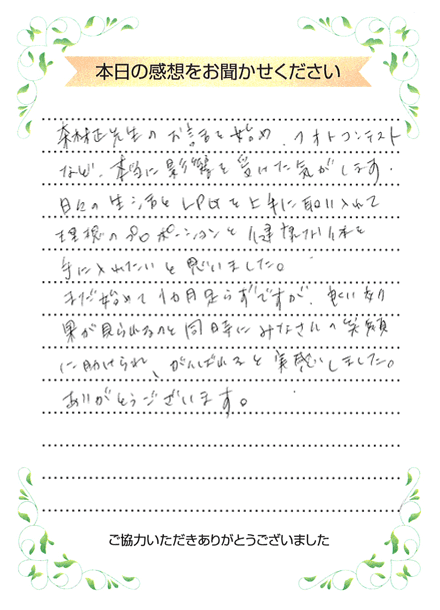 本日の感想をお聞かせください
先生のお話を始め、フォトコンテスト
など、本当に影響を受けた気がします。
日々の生活をLPGを上手に取り入れて
理想のプロポーションと健康な体を
手に入れたいと思いました。
まだ始めて1カ月足らずですが、良い効
果が見られるのと同時にみなさんの笑顔
に助けられ、がんばれると実感しました。
ありがとうございます。
ご協力いただきありがとうございました